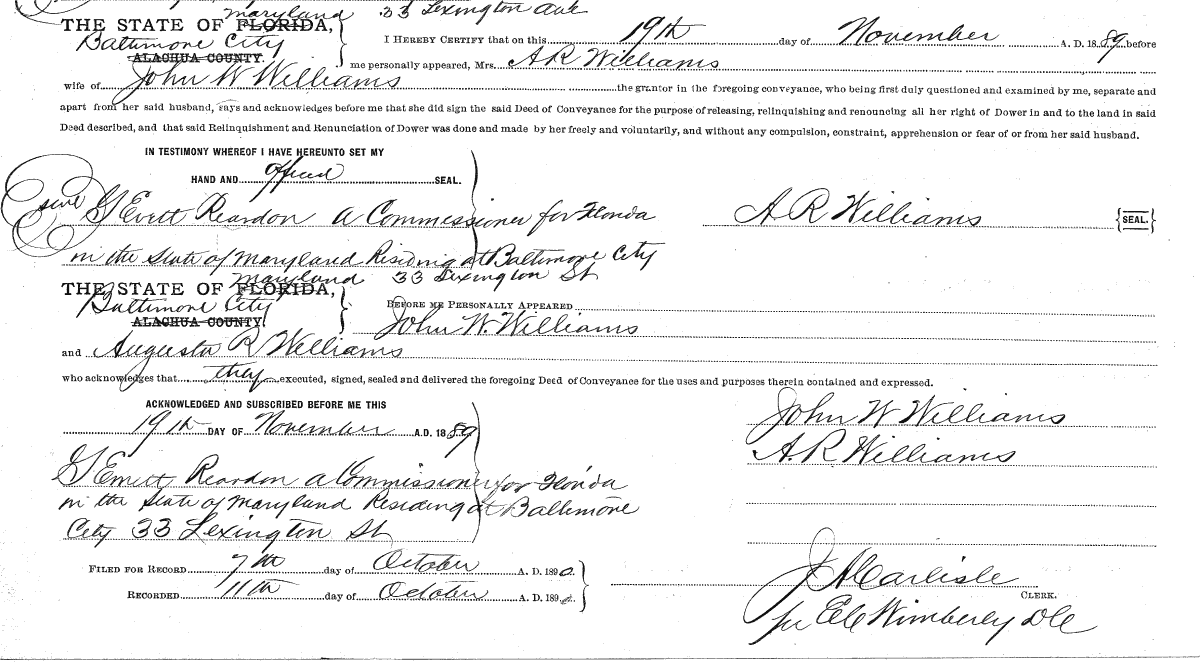 Maryland 33 Lexington Ave
THE STATE OF FLORIDA,
Baltimore City I HEREBY CERTIFY that on this 19th day of November A. D. 1889 before
ALACHUA COUNTY. me personally appeared, Mrs. A R Williams
wife of John W Williams the grantor in the foregoing conveyance, who being first duly questioned and examined by me, separate and
apart from her said husband, says and acknowledges before me that she did sign the said Deed of Conveyance for the purpose of releasing, relinquishing and renouncing all her right of Dower in and to the land in said
Deed described, and that said Relinquishment and Renunciation of Dower was done and made by her freely and voluntarily, and without any compulsion, constraint, apprehension or fear of or from her said husband.
IN TESTIMONY WHEREOF I HAVE HEREUNTO SET MY
HAND AND official SEAL.
seal G Evett Reardon A Commissioner for Florida A R Williams {SEAL.}
in the State of Maryland Residing at Baltimore City
Maryland 33 Lexington St
THE STATE OF FLORIDA,
Baltimore City BEFORE ME PERSONALLY APPEARED
ALACHUA COUNTY John W. Williams
and Augusta R Williams
who acknowledges that they executed, signed, sealed and delivered the foregoing Deed of Conveyance for the uses and purposes therein contained and expressed.
ACKNOWLEDGED AND SUBSCRIBED BEFORE ME THIS John W Williams
19th DAY OF November A.D. 1889 A. R Williams
G Emett Reardon a Commissioner for Florida
in the State of Maryland Residing at Baltimore
City 33 Lexington St
FILED FOR RECORD 7th day of October A. D. 1890 J A Carlisle
RECORDED 11th day of October A. D. 1890 CLERK.
per Wimberly DC